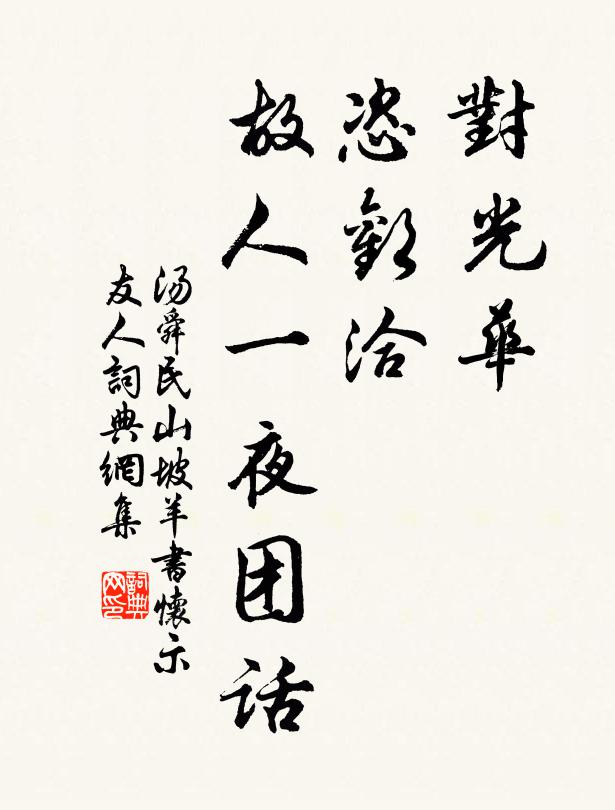 對光華
恣歡洽
故人一夜团話
汤舜民山坡羊書懷示
友人詞典網集
詞典网印